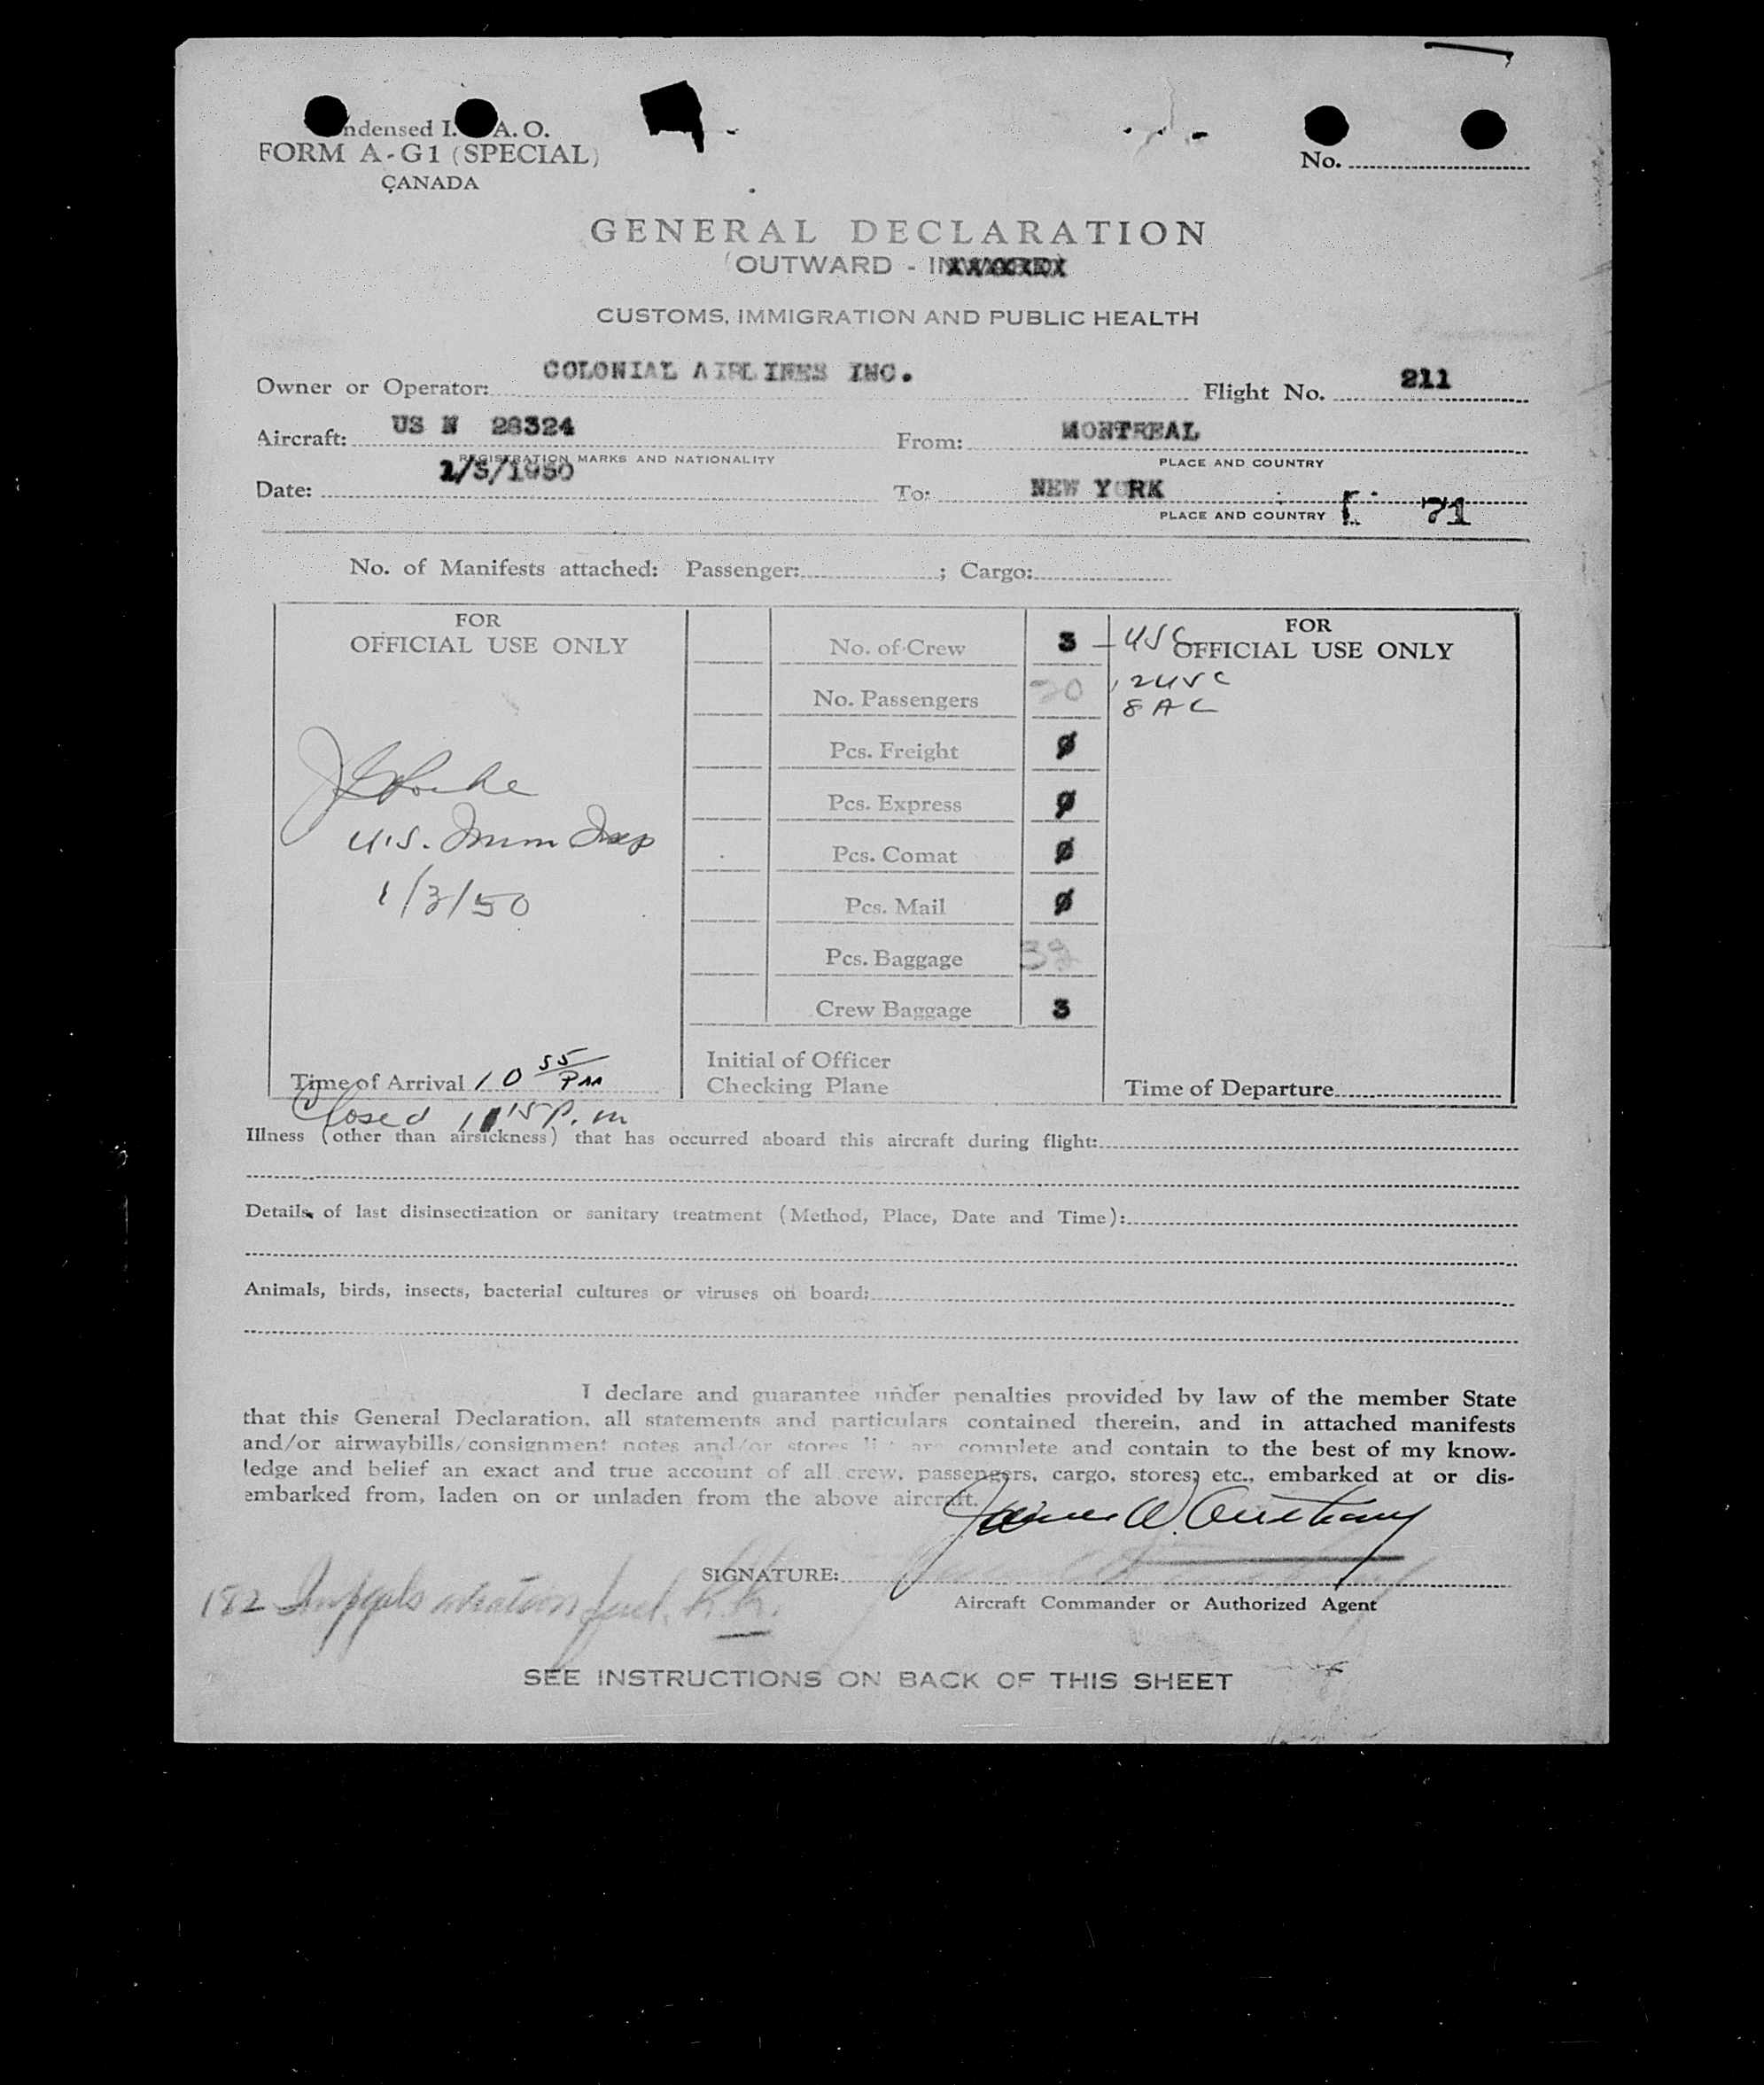 ndensed I. A. O.
FORM A-G1 (SPECIAL)
CANADA
No.
GENERAL DECLARATION
(OUTWARD -
CUSTOMS, IMMIGRATION AND PUBLIC HEALTH
Owner or Operator: COLONIAL AIRLINES INC. Flight No. 211
Aircraft: US N 28324 From: MONTREAL
REGISTRATION MARKS AND NATIONALITY PLACE AND COUNTRY
Date: 1/3/1950 To: NEW YORK
PLACE AND COUNTRY 71
No. of Manifests attached: Passenger: ; Cargo:
FOR
OFFICIAL USE ONLY
U.S. Imm Insp
1/3/50
Time of Arrival 10 55 PM
Closed 11 15 P.m
No. of Crew 3
No. Passengers 20
Pcs. Freight Ø
Pcs. Express Ø
Pcs. Comat Ø
Pcs. Mail Ø
Pcs. Baggage
Crew Baggage 3
Initial of Officer
Checking Plane
FOR
OFFICIAL USE ONLY
- USC
12 USC
8 AC
Time of Departure
Illness (other than airsickness) that has occurred aboard this aircraft during flight:
Details of last disinsectization or sanitary treatment (Method, Place, Date and Time):
Animals, birds, insects, bacterial cultures or viruses on board:
I declare and guarantee under penalties provided by law of the member State
that this General Declaration, all statements and particulars contained therein, and in attached manifests
and/or airwaybills/consignment notes and/or stores list are complete and contain to the best of my know-
ledge and belief an exact and true account of all crew, passengers, cargo, stores, etc., embarked at or dis-
embarked from, laden on or unladen from the above aircraft.
James W. Anthony
SIGNATURE:
Aircraft Commander or Authorized Agent
182 Imp gals aviation fuel.
SEE INSTRUCTIONS ON BACK OF THIS SHEET